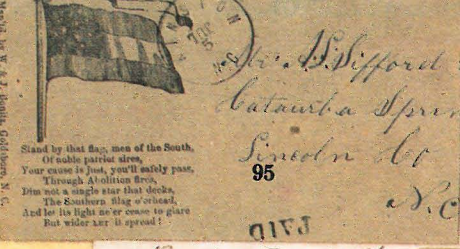 Stand by that flag, men of the South,
Of noble patriot sires,
Your cause is just, you'll safely pass,
Through Abolition fires,
Dim not a single star that decks,
The Southern flag o'erhead,
And let its light ne'er cease to glare
But wider
it spread!
Goldsboro, N. C.
Sifford
Catawba Sprin
Lincoln Co
N.C.
95
PAID